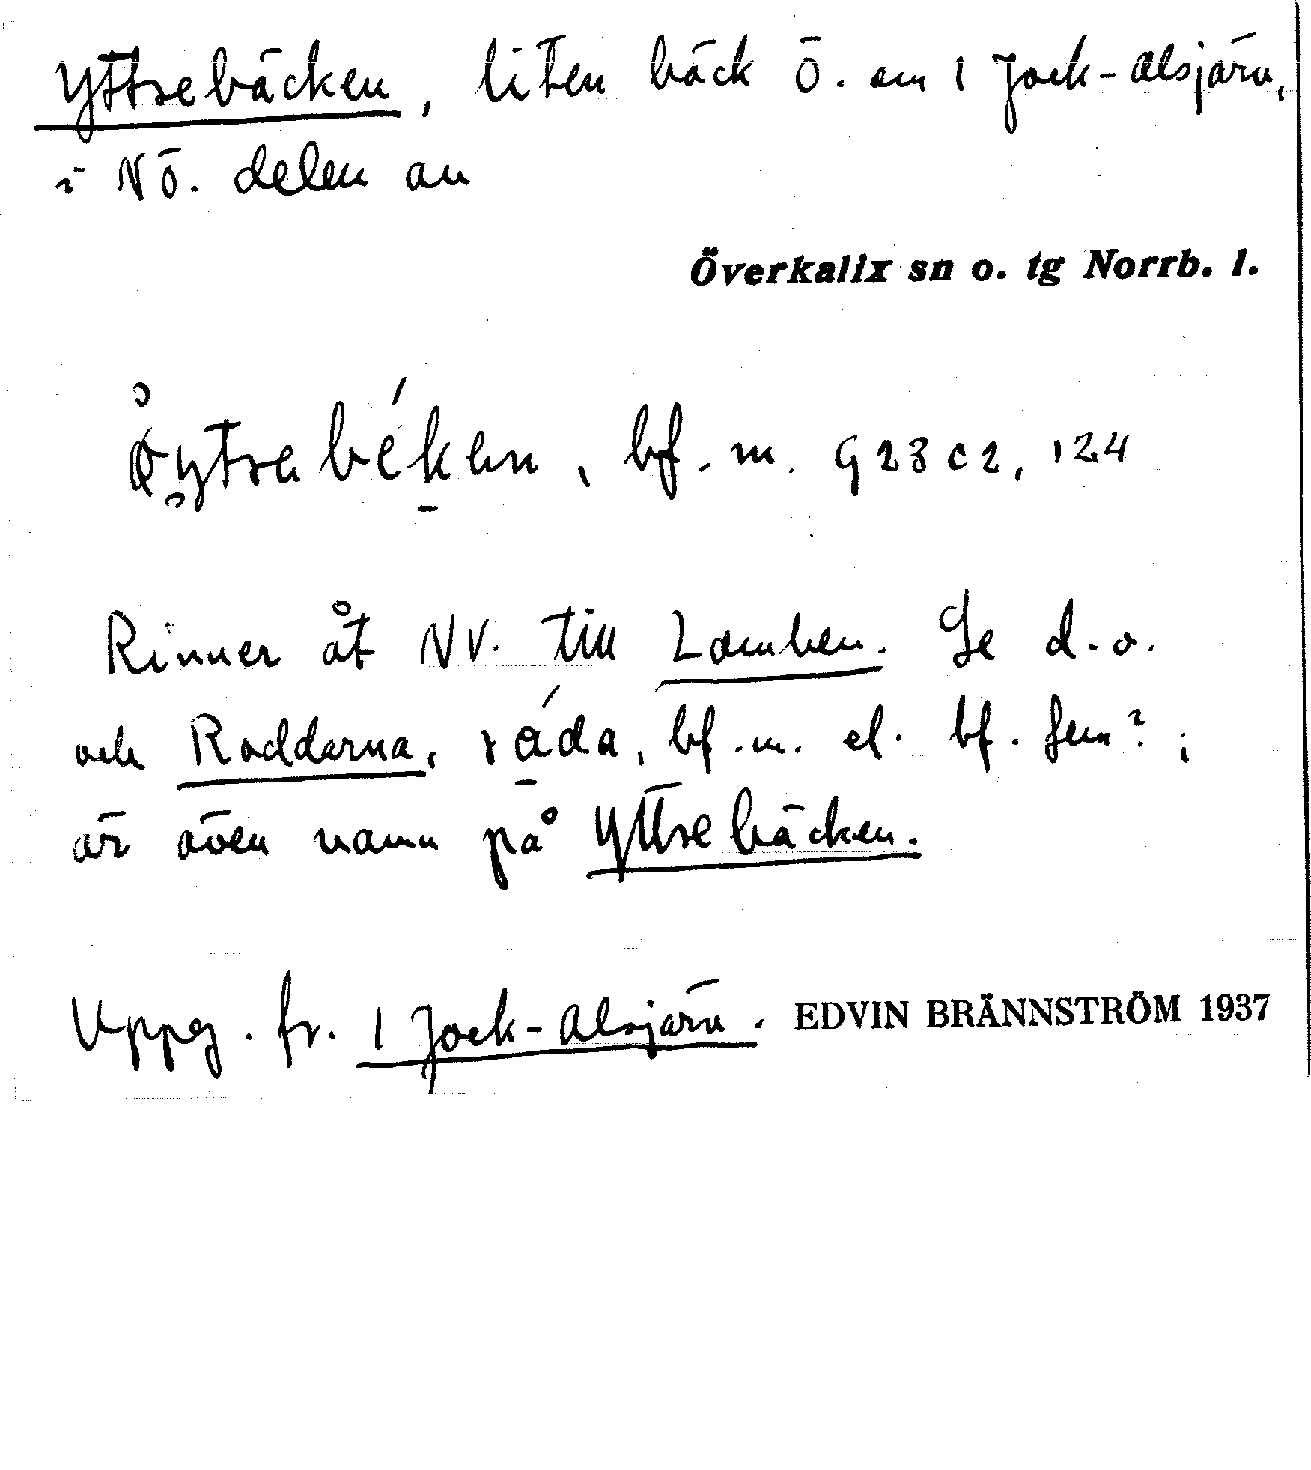 Yttrebäcken, liten bäck Ö. om 1 Jock-Alsjärv,
i NÖ. delen av
Överkalix sn o. tg Norrb. l.
bf. m. G 23 c 2, 124
Rinner åt NV. till Lomben. Se d. o.
och Rodderna, råda, bf. m. el. bf. fem?;
är även namn på Yttrebäcken.
Uppg. fr. 1 Jock-Alsjärv. EDVIN BRÄNNSTRÖM 1937